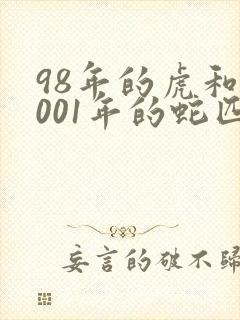 98年的虎和
001年的蛇匹
妄言的破不歸